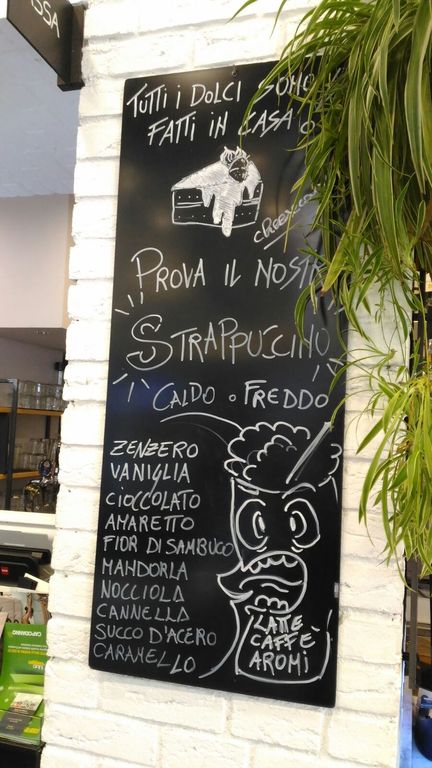 SSA
TUTTI I DOLCI SONO
FATTI IN CASA
PROVA IL NOSTR
STRAPPUCCINO
CALDO o FREDDO
ZENZERO
VANIGLIA
CIOCCOLATO
AMARETTO
FIOR DI SAMBUCO
MANDORLA
NOCCIOLA
CANNELLA
SUCCO D'ACERO
CARAMELLO
LATTE
CAFFÈ
AROMI